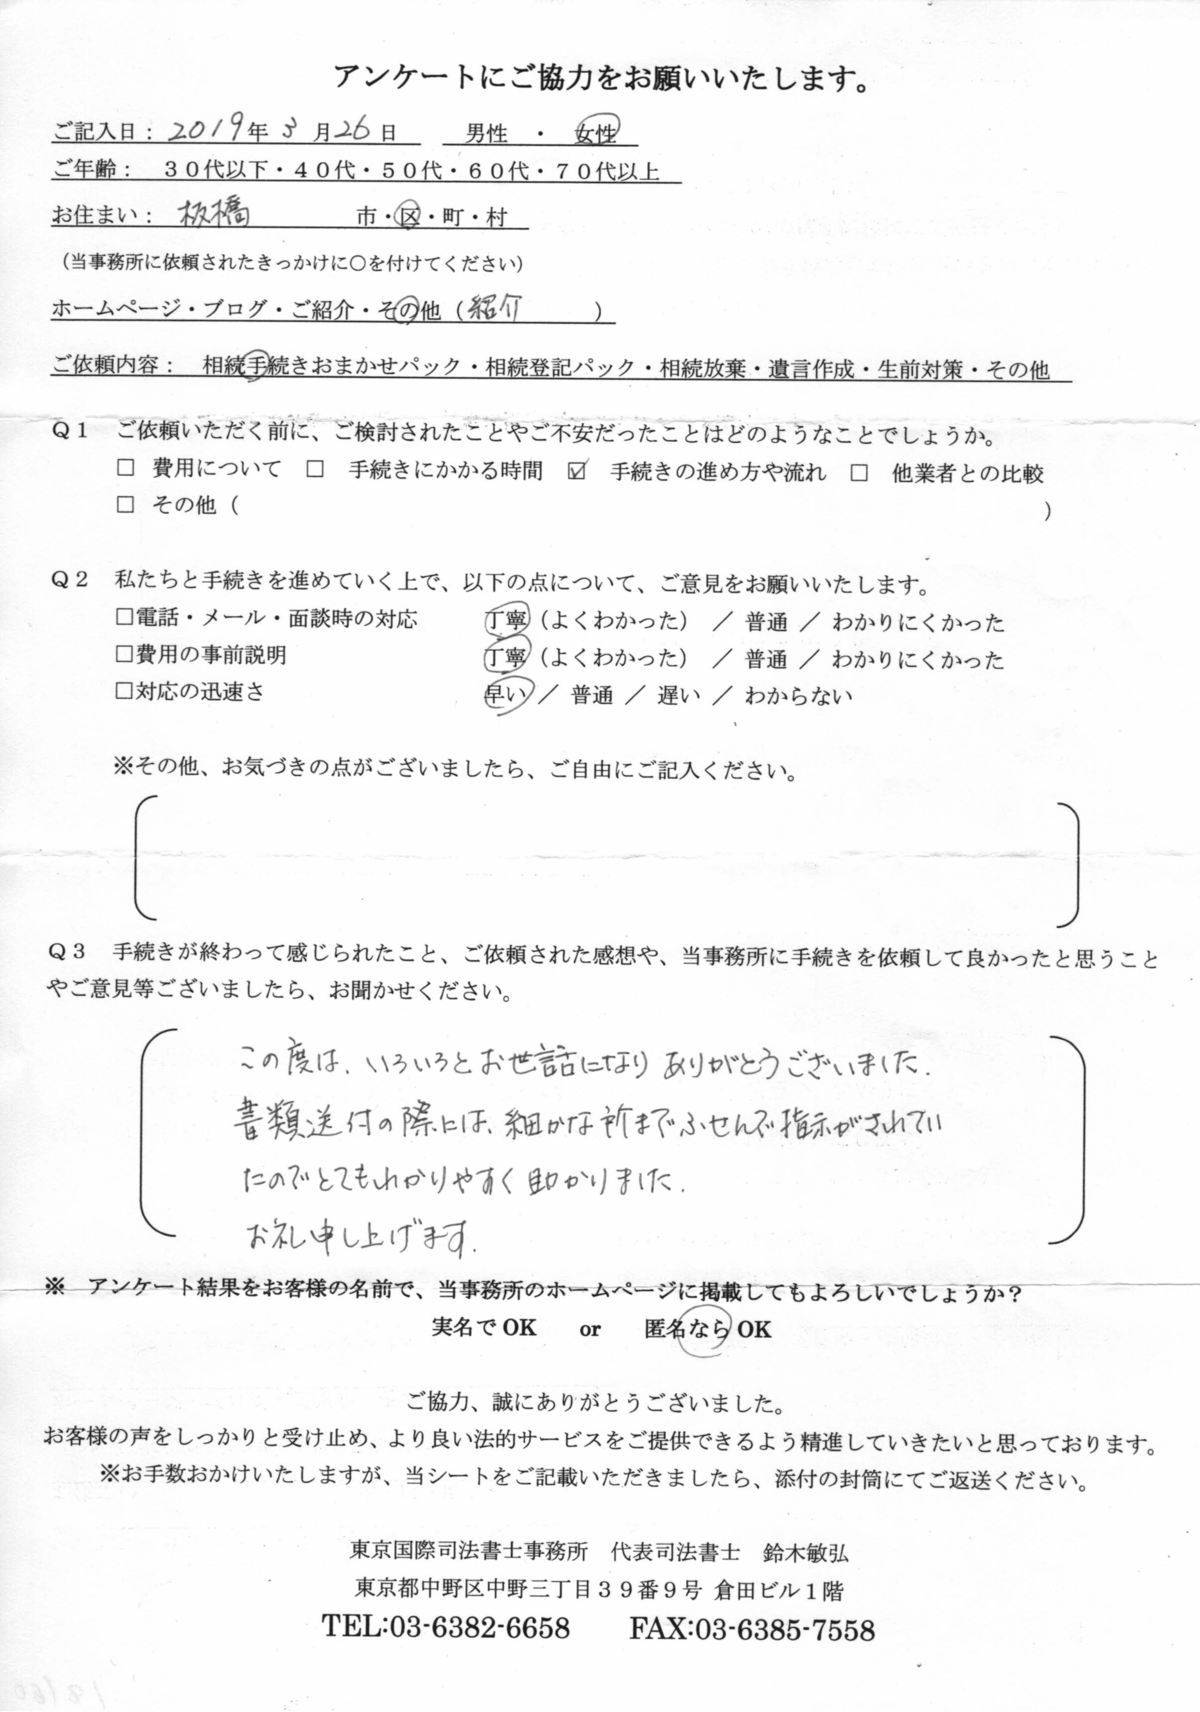 アンケートにご協力をお願いいたします。
ご記入日： 2019年 3 月 26 日　男性 ・ 女性
ご年齢：　３０代以下・４０代・５０代・６０代・７０代以上
お住まい： 板橋　市・区・町・村
（当事務所に依頼されたきっかけに○を付けてください）
ホームページ・ブログ・ご紹介・その他（ 紹介　　）
ご依頼内容：　相続手続きおまかせパック・相続登記パック・相続放棄・遺言作成・生前対策・その他
Ｑ１　ご依頼いただく前に、ご検討されたことやご不安だったことはどのようなことでしょうか。
□ 費用について □ 手続きにかかる時間 ☑ 手続きの進め方や流れ □ 他業者との比較
□ その他（　　　）
Ｑ２　私たちと手続きを進めていく上で、以下の点について、ご意見をお願いいたします。
□電話・メール・面談時の対応　丁寧（よくわかった） ／ 普通 ／ わかりにくかった
□費用の事前説明　丁寧（よくわかった） ／ 普通 ／ わかりにくかった
□対応の迅速さ　早い ／ 普通 ／ 遅い ／ わからない
※その他、お気づきの点がございましたら、ご自由にご記入ください。
Ｑ３　手続きが終わって感じられたこと、ご依頼された感想や、当事務所に手続きを依頼して良かったと思うこと
やご意見等ございましたら、お聞かせください。
この度は、いろいろとお世話になりありがとうございました.
書類送付の際には、細かな所までふせんで指示がされてい
たのでとてもわかりやすく助かりました.
お礼申し上げます.
※　アンケート結果をお客様の名前で、当事務所のホームページに掲載してもよろしいでしょうか？
実名で OK　or　匿名なら OK
ご協力、誠にありがとうございました。
お客様の声をしっかりと受け止め、より良い法的サービスをご提供できるよう精進していきたいと思っております。
※お手数おかけいたしますが、当シートをご記載いただきましたら、添付の封筒にてご返送ください。
東京国際司法書士事務所　代表司法書士　鈴木敏弘
東京都中野区中野三丁目３９番９号 倉田ビル１階
TEL:03-6382-6658　FAX:03-6385-7558